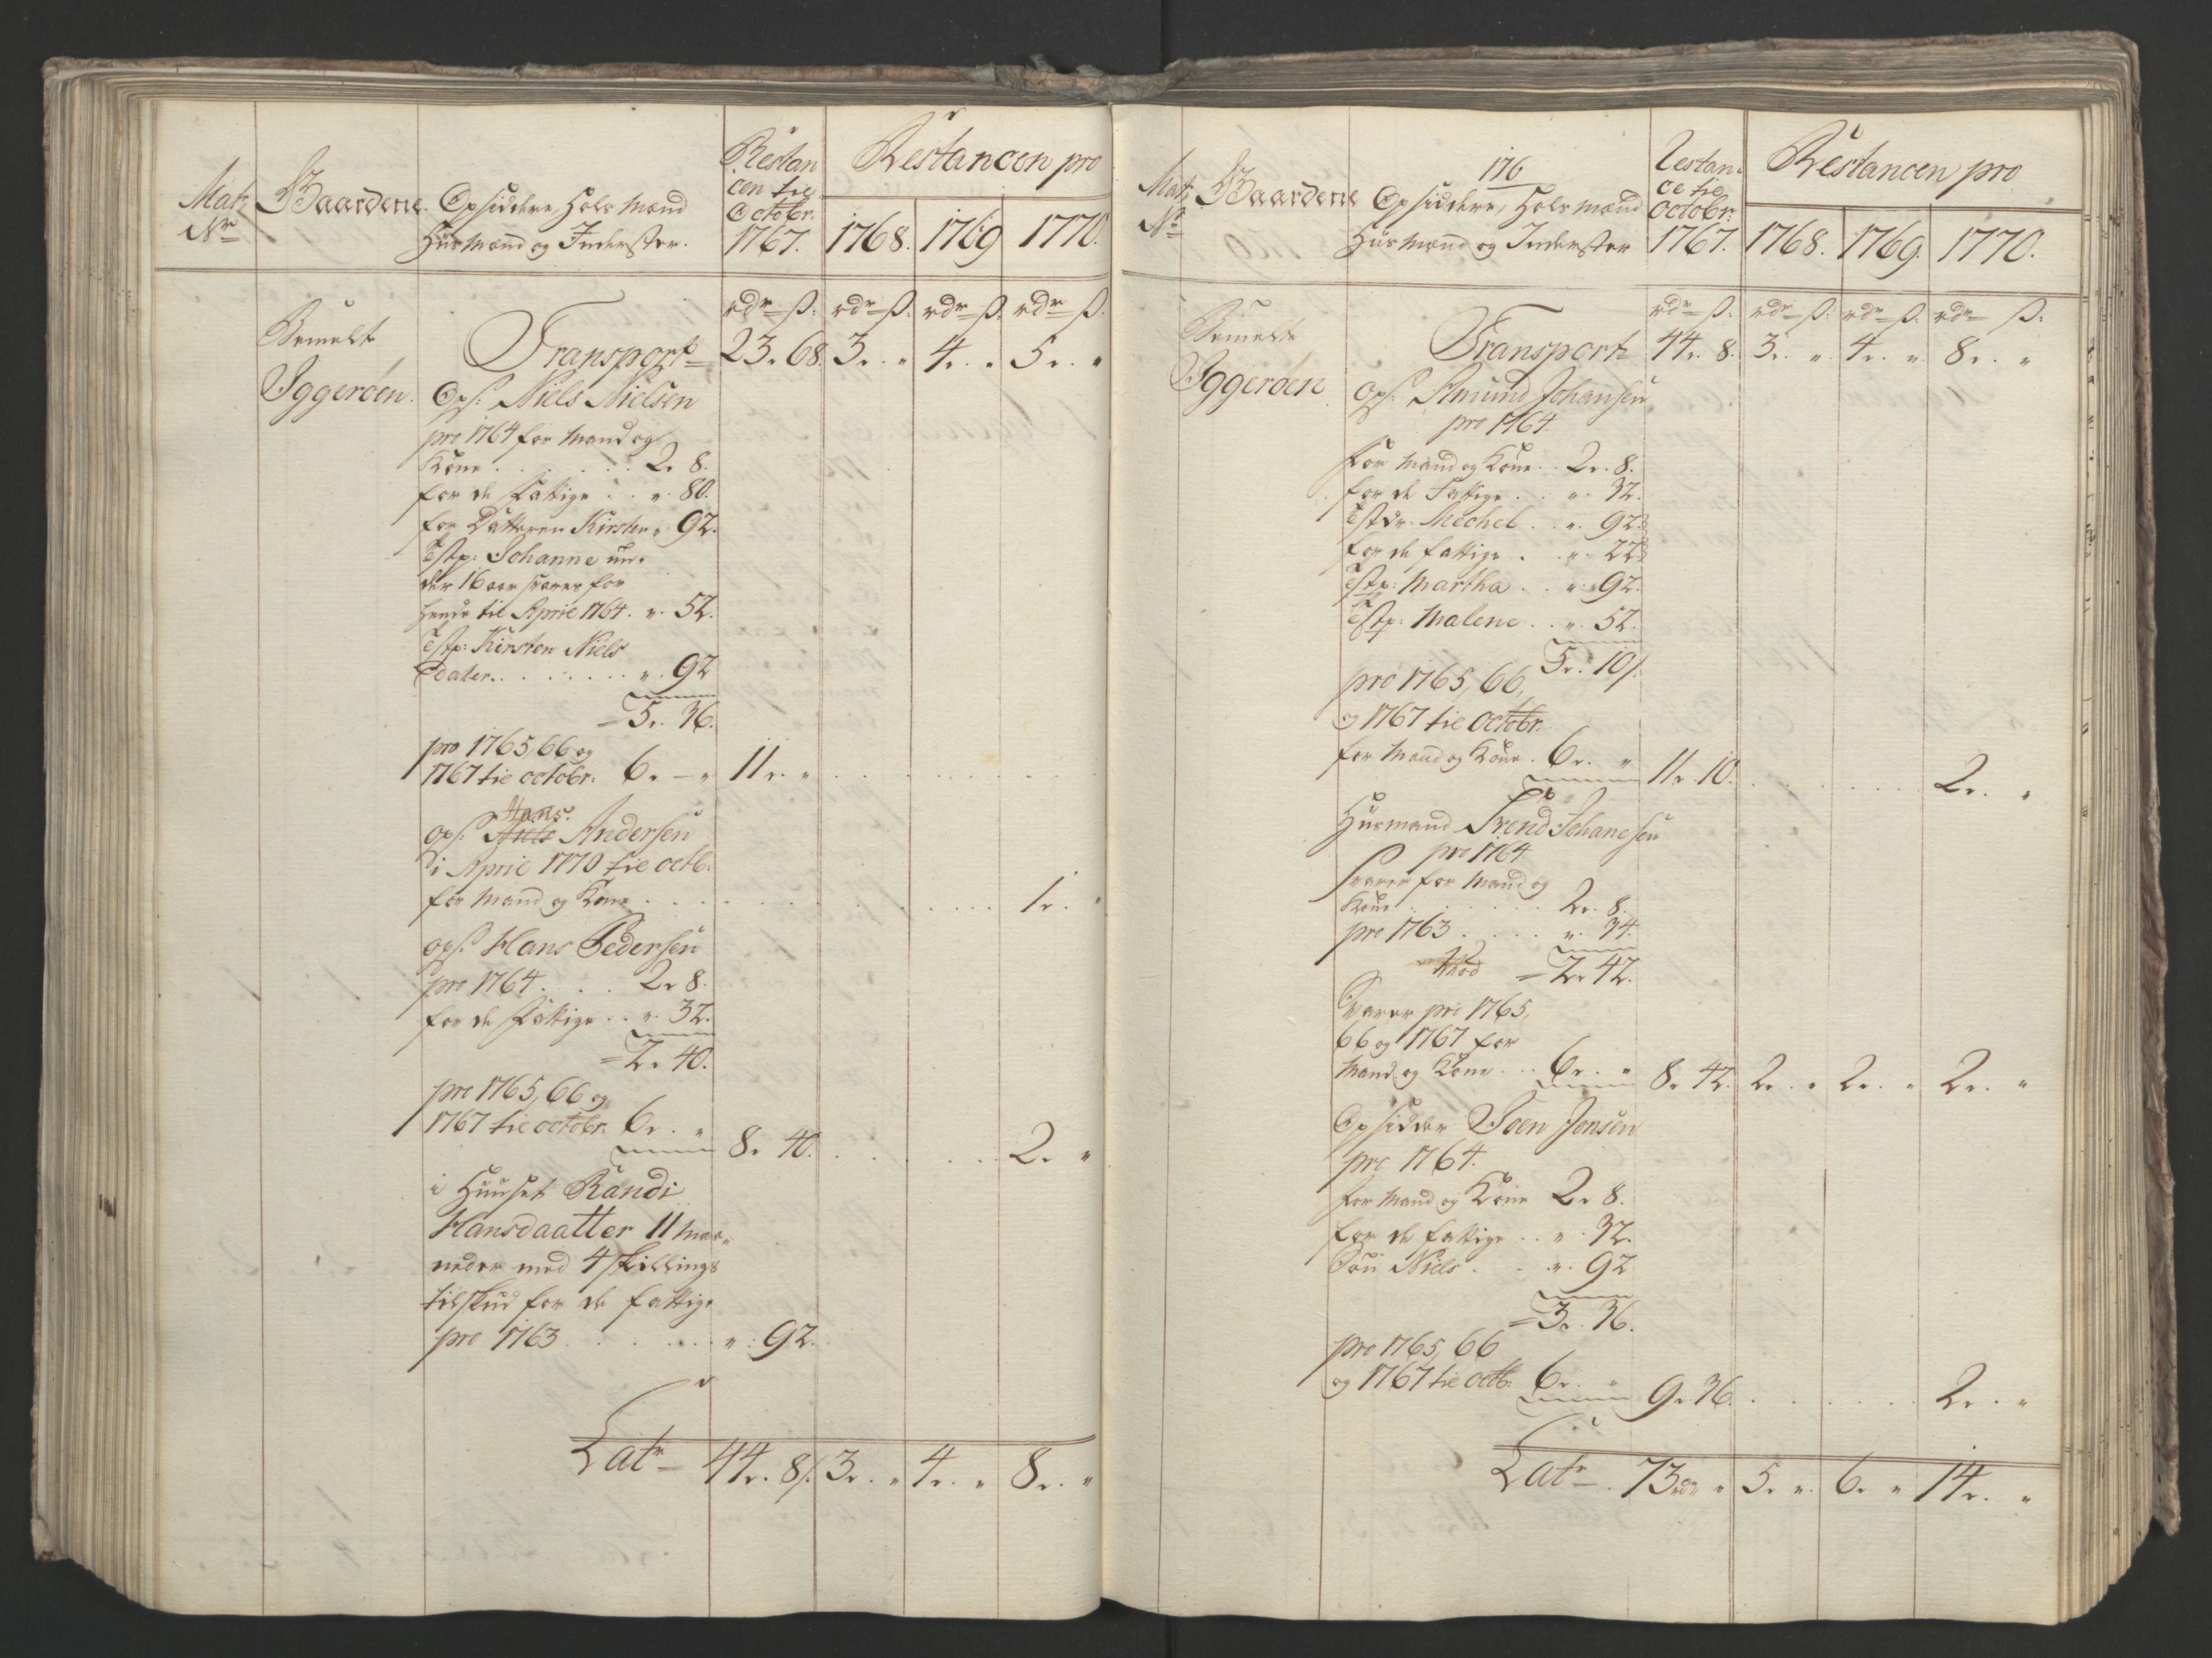 Mat: Nr
Gaardene.
Opsiddere, Hols Mænd
Huusmænd og Inderster.
Restan
cen til
Octobr:
1767.
Restancen pro
1768. 1769 1770.
rdr ß: rdr ß. rdr ß. rdr ß.
Bemelte
Iggerøen.
Transport 23. 68. 3r. " 4r. " 5r. "
Ops: Niels Nielsen
pro 1764 for Mand og
Kone . . . . . 2. 8.
for de Fattige . . ". 80.
for Datteren Kirsten ". 92.
Tstp: Johanne un-
der 16 aar svarer for
hende til April 1764. ". 52.
Tstp: Kirsten Niels
dater. . . . . . . ". 92
= 5r. 36.
pro 1765, 66 og
1767 til octobr: 6. — " 11r. "
Hans.
ops: Andersen
i April 1770 til octb:
for Mand og Kone . . . . 1r. "
ops: Hans Pedersen
pro 1764. . . . 2r 8.
for de Fattige . . ". 32.
= 2. 40.
pro 1765, 66 og
1767 til octobr: 6r. " 8. 40. . . . . 2. "
i Huuset Randi
Hansdaatter 11 maa-
neder med 4 skillings
tilskud for de fattige
pro 1763 . . . . . ". 92.
Latr 44r. 8ß. 3r. " 4r. " 8r. "
176
Mat: Nr
Gaardene
Opsiddere, Hols mænd
Huusmænd og Inderster
Restan-
ce til
octobr:
1767.
Restancen pro
1768. 1769. 1770.
rdr ß: rdr ß: rdr ß. rdr ß:
Bemelte
Iggerøen
Transport 44r. 8. 3r. ". 4r. ". 8r. "
Ops: Amund Johansen
pro 1764.
for Mand og Kone . . 2r. 8.
for de Fattige . . ". 32.
Tstdr: Mechel . . ". 92.
for de fattige . . ". 22
Tstp: Martha . . ". 92.
Tstp: Malene . . ". 52.
5r. 10ß.
pro 1765, 66,
og 1767 til octobr:
for Mand og Kone . 6r. " 11r. 10. . . . . 2r. "
Huusmand Trend Johanesen
pro 1764
svarer for Mand og
Kone . . . . . 2r. 8.
pro 1763 . . . . ". 34.
= 2r 42.
Svarer pro 1765,
66 og 1767 for
Mand og Kone . . . 6r. " 8r 42. 2r. " 2r. " 2r. "
Opsidder Joen Jonsen
pro 1764.
for Mand og Kone 2r 8.
for de fattige . . ". 32.
Søn Niels . . . ". 92
= 3r. 36.
pro 1765, 66
og 1767 til octb: 6r. " 9r 36. . . . . 2r. "
Latr . 73rdr " 5r ". 6r " 14r. "